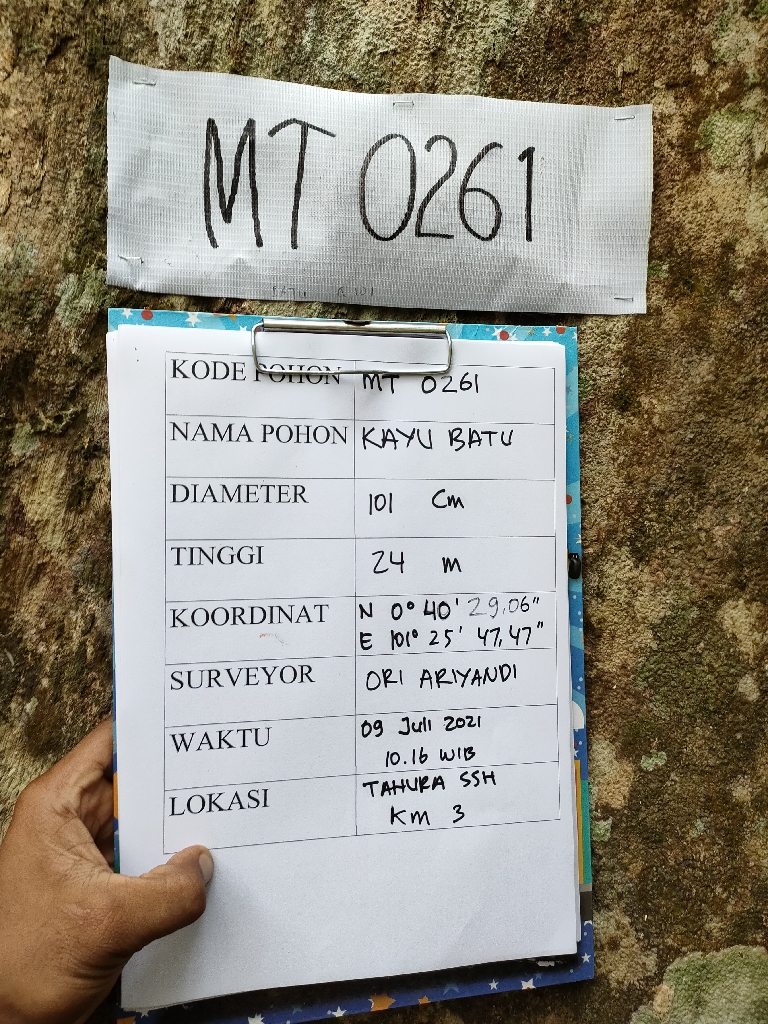 MT 0261
KODE POHON MT 0261
NAMA POHON KAYU BATU
DIAMETER 101 Cm
TINGGI 24 m
KOORDINAT N 0° 40' 29,06"
E 101° 25' 47,47"
SURVEYOR ORI ARIYANDI
WAKTU 09 Juli 2021
10.16 WIB
LOKASI TAHURA SSH
Km 3